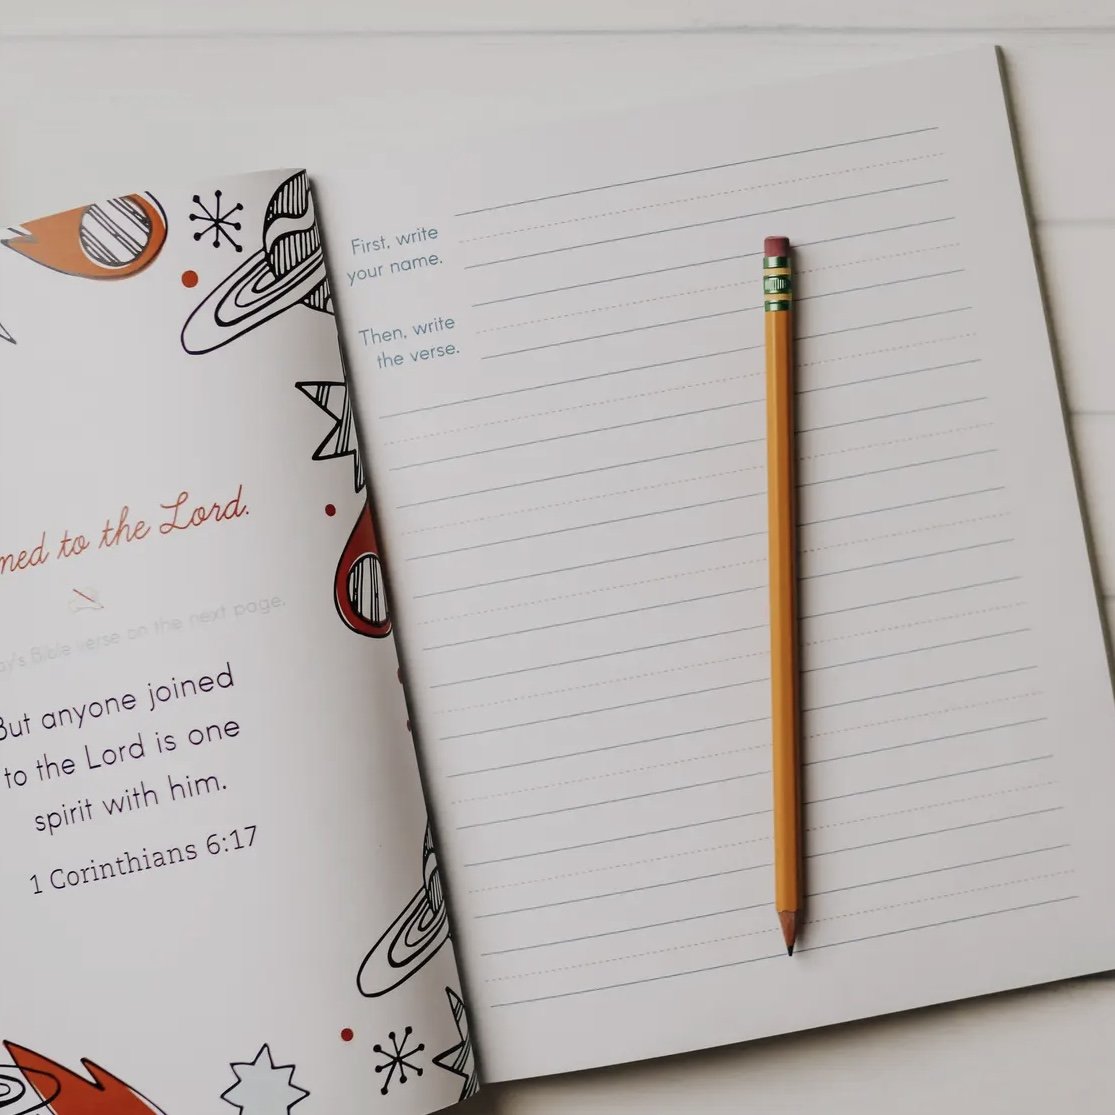 to the Lord.
Bible verse on the next page.
But anyone joined
to the Lord is one
spirit with him.
1 Corinthians 6:17
First, write
your name.
Then, write
the verse.